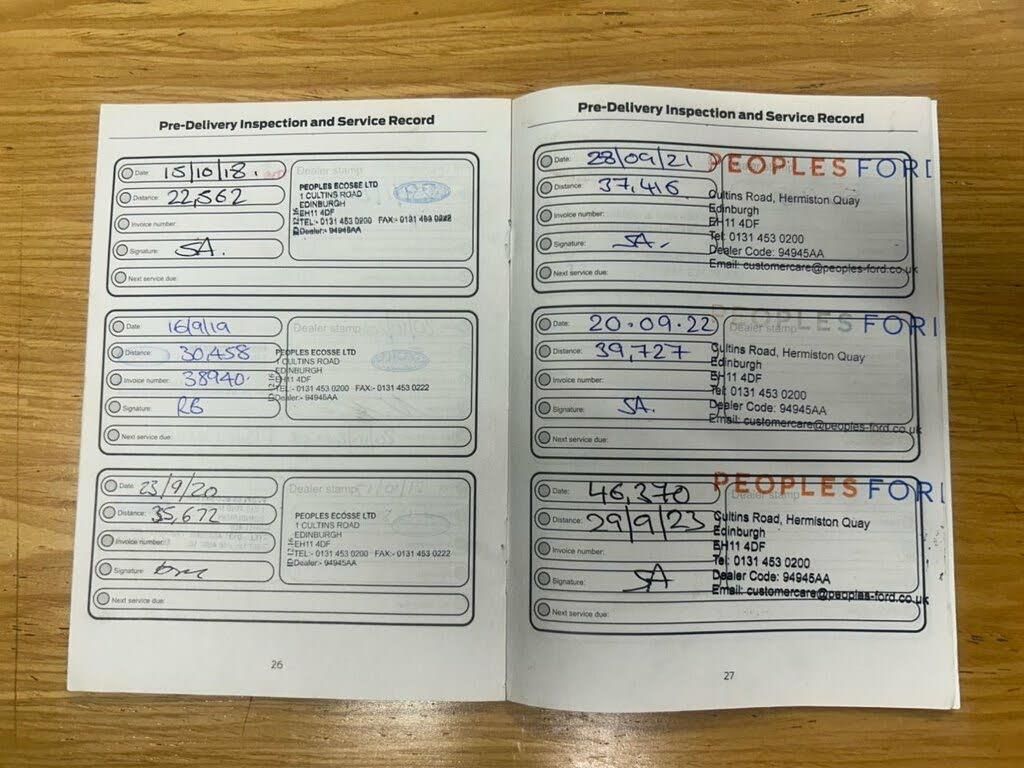 Pre-Delivery Inspection and Service Record
Date: 15/10/18.
Distance: 22,562
Invoice number:
Signature: SA.
Next service due:
Dealer stamp
PEOPLES ECOSSE LTD
1 CULTINS ROAD
EDINBURGH
EH11 4DF
TEL:- 0131 453 0200 FAX:- 0131 453 0222
Dealer:- 94945AA
Date: 16/9/19
Distance: 30,458
Invoice number: 38940.
Signature: RG
Next service due:
Dealer stamp
PEOPLES ECOSSE LTD
1 CULTINS ROAD
EDINBURGH
EH11 4DF
TEL:- 0131 453 0200 FAX:- 0131 453 0222
Dealer:- 94945AA
Date: 23/9/20
Distance: 35,672
Invoice number:
Signature:
Next service due:
Dealer stamp
PEOPLES ECOSSE LTD
1 CULTINS ROAD
EDINBURGH
EH11 4DF
TEL:- 0131 453 0200 FAX:- 0131 453 0222
Dealer:- 94945AA
26
Pre-Delivery Inspection and Service Record
Date: 28/09/21
Distance: 37,416
Invoice number:
Signature: SA.
Next service due:
PEOPLES FORD
Cultins Road, Hermiston Quay
Edinburgh
EH11 4DF
Tel: 0131 453 0200
Dealer Code: 94945AA
Email: customercare@peoples-ford.co.uk
Date: 20.09.22
Distance: 39,727
Invoice number:
Signature: SA.
Next service due:
Dealer stamp
PEOPLES FORD
Cultins Road, Hermiston Quay
Edinburgh
EH11 4DF
Tel: 0131 453 0200
Dealer Code: 94945AA
Email: customercare@peoples-ford.co.uk
Date: 46,370
Distance: 29/9/23
Invoice number:
Signature: SA
Next service due:
Dealer stamp
PEOPLES FORD
Cultins Road, Hermiston Quay
Edinburgh
EH11 4DF
Tel: 0131 453 0200
Dealer Code: 94945AA
Email: customercare@peoples-ford.co.uk
27